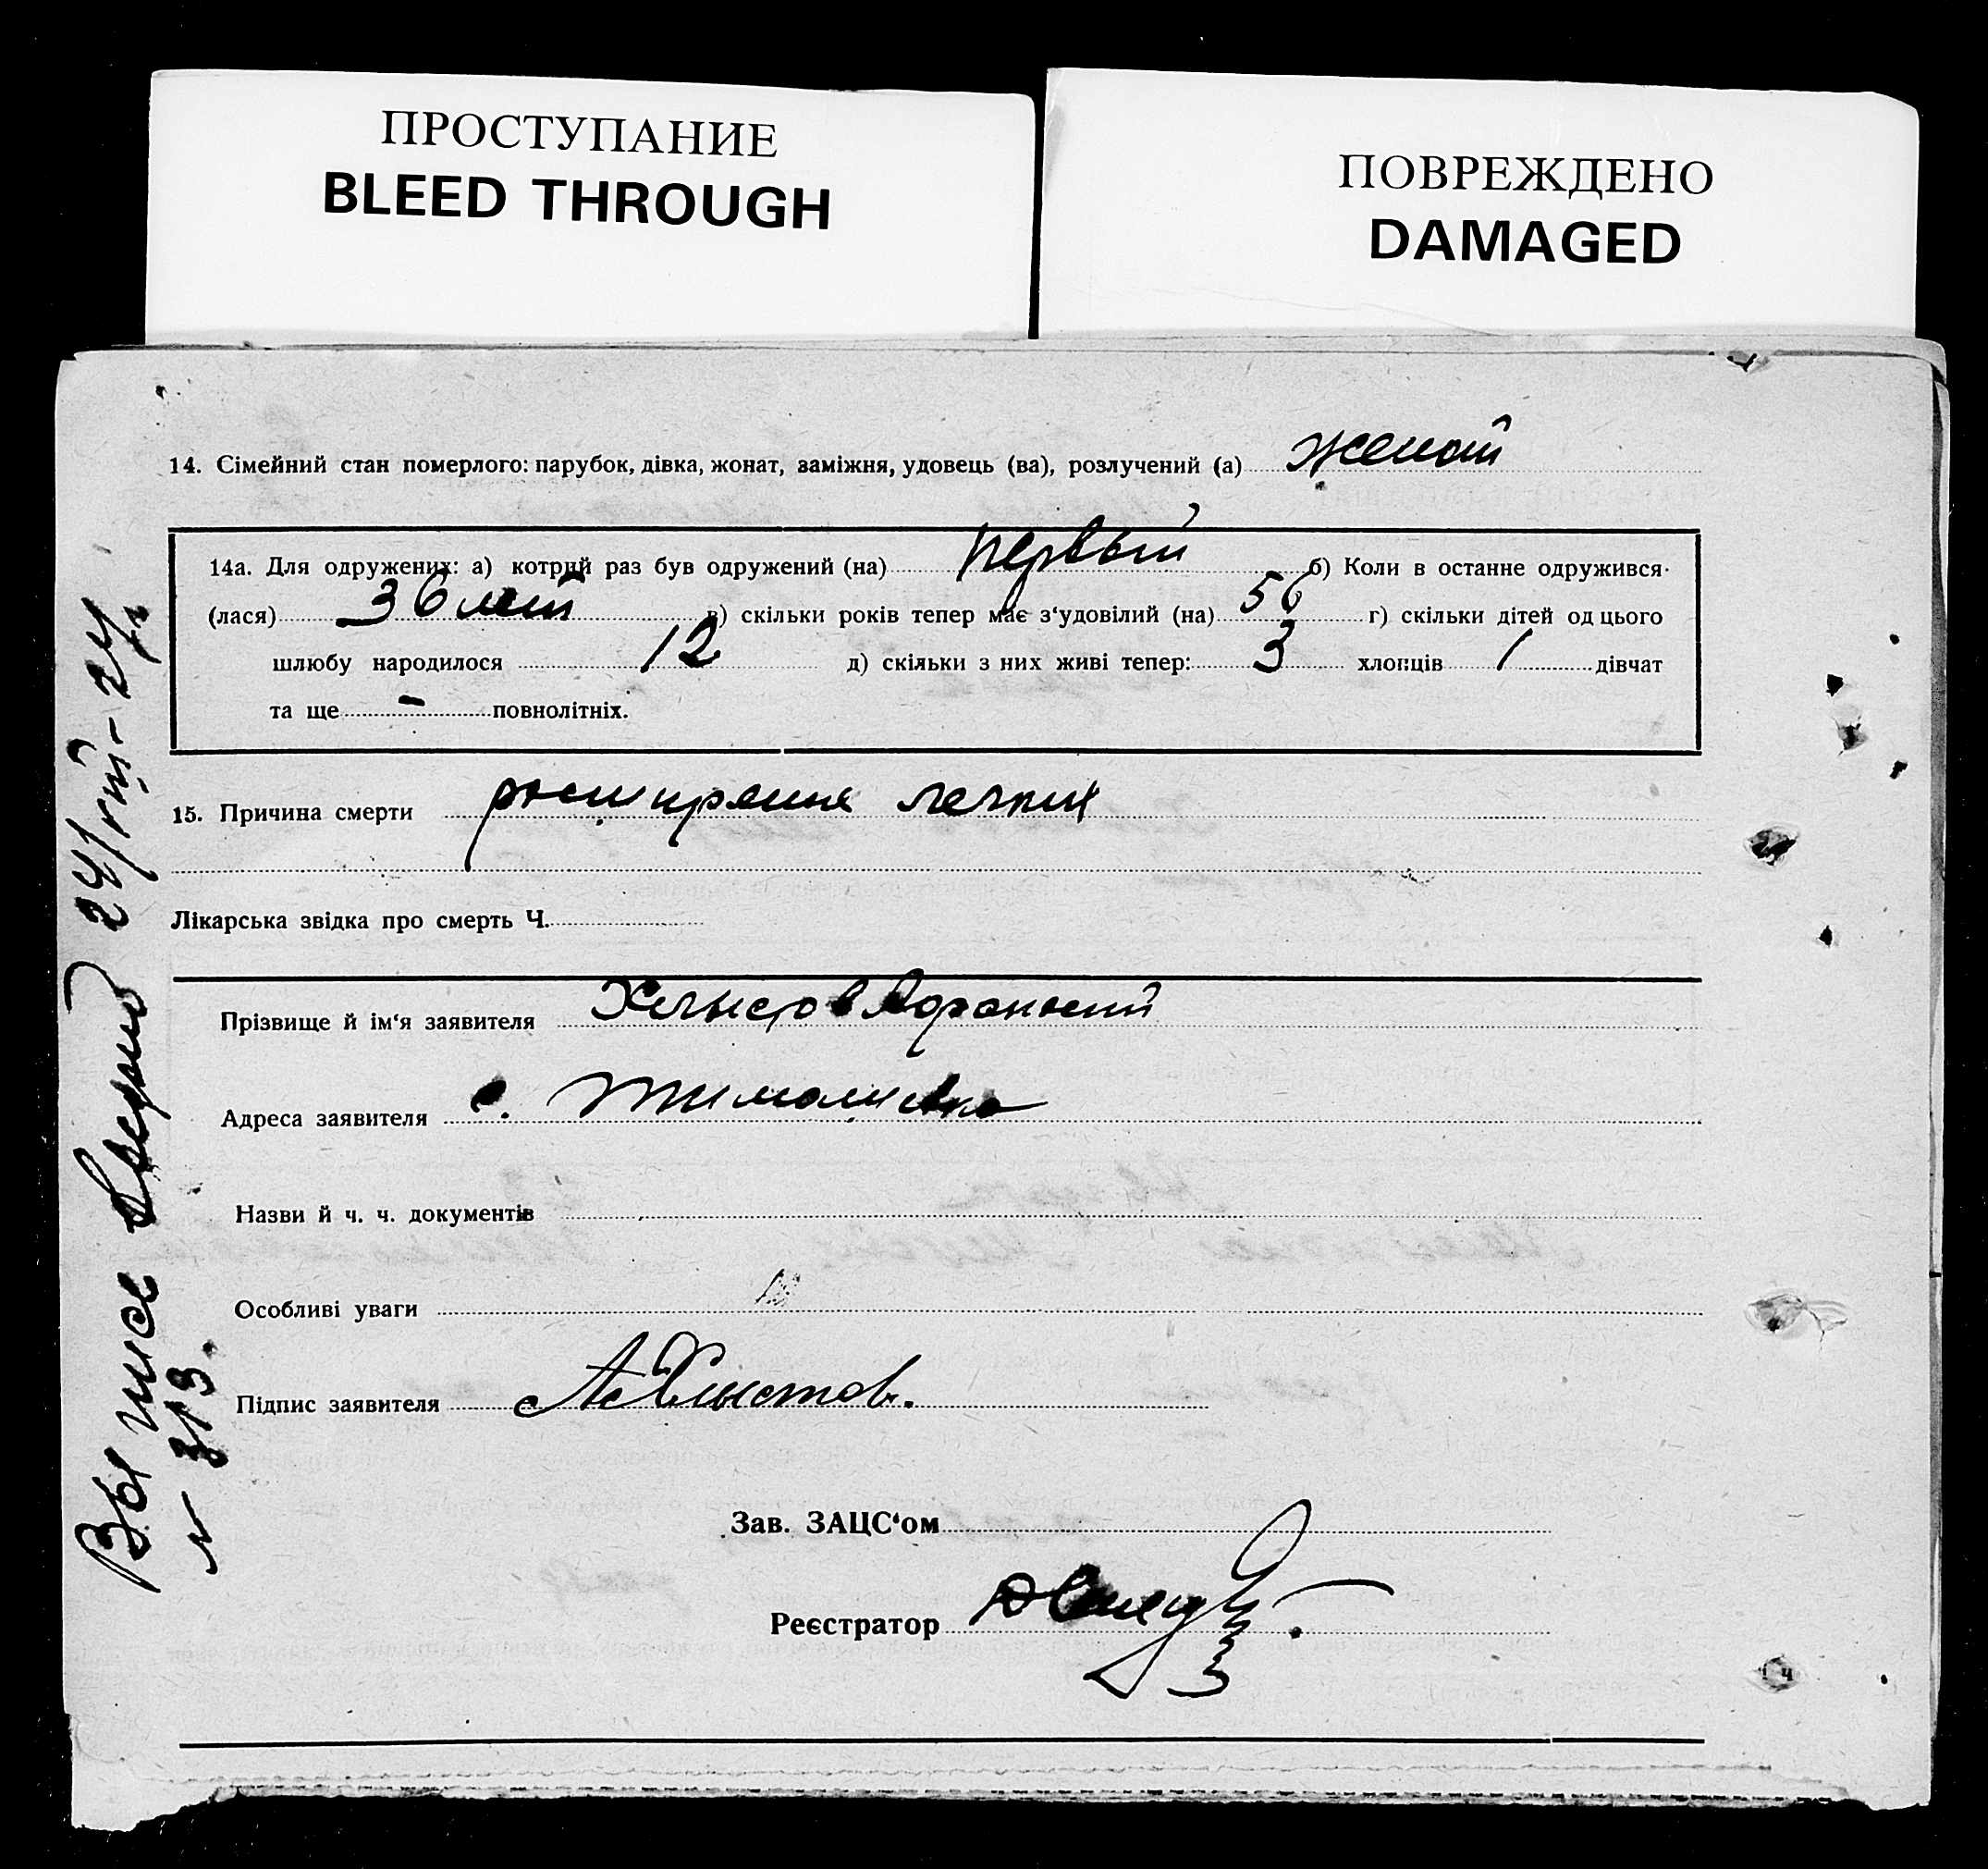 ПРОСТУПАНИЕ
BLEED THROUGH
ПОВРЕЖДЕНО
DAMAGED
14. Сімейний стан померлого: парубок, дівка, жонат, заміжня, удовець (ва), розлучений (а) женат
14а. Для одружених: а) котрий раз був одружений (на) первый б) Коли в останне одружився
(лася) 36 лет в) скільки років тепер має з‘удовілий (на) 56 г) скільки дітей од цього
шлюбу народилося 12 д) скільки з них живі тепер: 3 хлопців 1 дівчат
та ще - повнолітніх.
15. Причина смерти расширение легких
Лікарська звідка про смерть Ч.
Прізвище й ім‘я заявителя Хлыстов
Адреса заявителя с.
Назви й ч. ч. документів
Особливі уваги
Підпис заявителя А Хлыстов.
Зав. ЗАЦС‘ом
Реєстратор
24/VIII-24 г
№ 313.